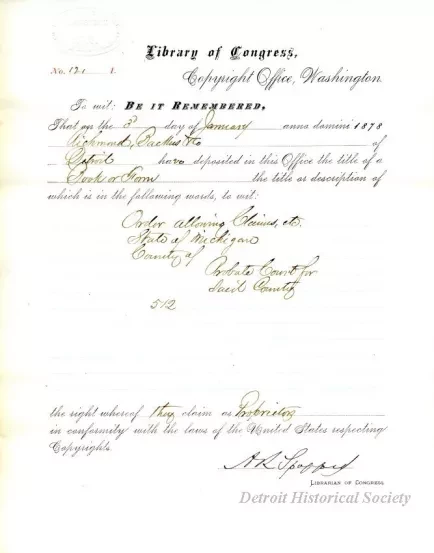 Library of Congress,
No.
Copyright Office, Washington.
To wit: BE IT REMEMBERED,
That on the 3d day of January anno domini 1878
Richmond, Backus & Co of
Detroit have deposited in this Office the title of a
Book or Form the title or description of
which is in the following words, to wit:
Order allowing Claims, etc.
State of Michigan
County of
Probate Court for
Said County
512
the right whereof they claim as Proprietors
in conformity with the laws of the United States respecting
Copyrights.
A R Spofford
LIBRARIAN OF CONGRESS
Detroit Historical Society